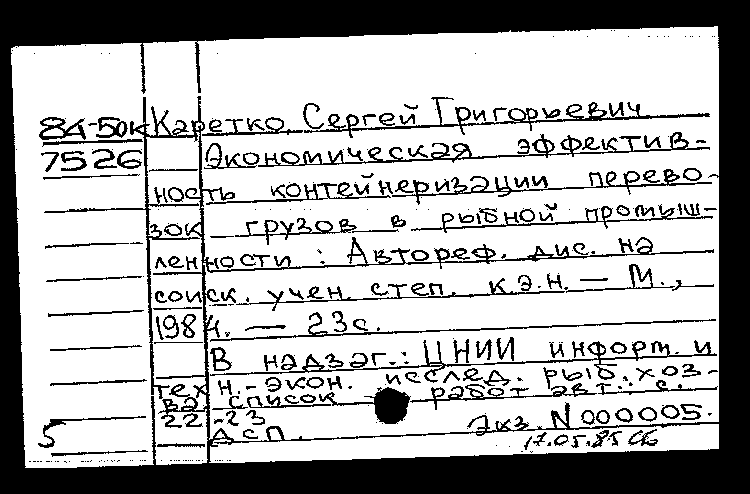 84-50к Каретко, Сергей Григорьевич
7526 Экономическая эффектив-
ность контейнеризации перево-
зок грузов в рыбной промыш-
ленности : Автореф. дис. на
соиск. учен. степ. к.э.н. — М.,
1984. — 23с.
В надзаг.: ЦНИИ информ. и
техн.-экон. исслед. рыб. хоз-
ва Список работ авт.: с.
22-23
5 ДСП. Экз. N 000005.
17.05.85 СБ